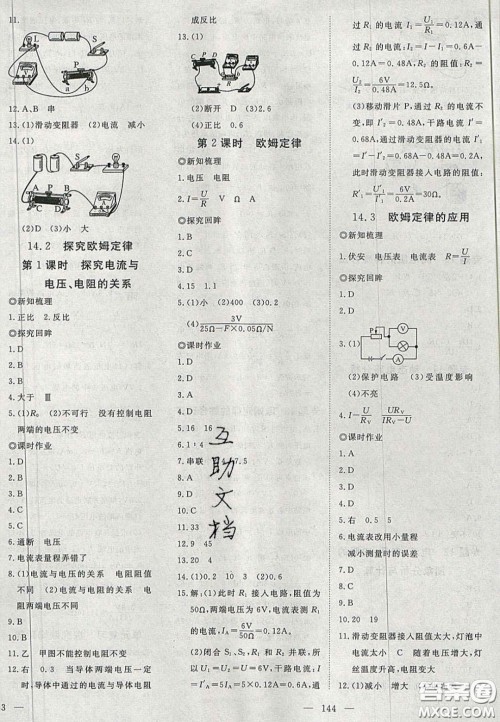 11.
12. A、B 串
13. (1)滑动变阻器 (2)电流 减小
14. (1)
(2)D (3)小 大
14.2 探究欧姆定律
第1课时 探究电流与
电压、电阻的关系
◎新知梳理
1. 正比 2. 反比
◎探究回眸
1. D
2. D
3. D
4. 大于 Ⅲ
5. (1)R₀ (2)不可行 没有控制电阻
两端的电压不变
◎课时作业
1. B
2. D
3. D
4. D
5. D
6. 通断 电压
7. 电流表量程弄错了
8. (1)电流与电压的关系 电阻阻值
不同 (2)电流与电阻的关系 电
阻两端电压不变
9. B
10. B
11. 乙 甲图不能控制电阻不变
12. 右 0.3 当导体两端电压一定
时，导体中的电流与导体的电阻
成反比
13. (1)
(2)断开 D (3)2.6
(4)正比 0.6
第2课时 欧姆定律
◎新知梳理
1. 电压 电阻
2. I=U/R V Ω A
◎探究回眸
1. C
2. D
3. D
4. 15 1.1
5. (1)小 (2)400 (3)0.2
(4) 3V/25Ω−F×0.05Ω/N
◎课时作业
1. B
2. D
3. C
4. D
5. 16 16
6. 1∶4
7. 串联 7.5
8. D
9. D
10. D
11. 33
12. D
13. D
14. (1)0.2 (2)10 (3)30
15. 解：(1)使R₁接入电路，阻值为
50Ω，电流表直接测出R₁的
电流，I_A=6V/50Ω=0.12A
(2)闭合S₁、S₂，R₁与R₂并联，
I=0.6A，因R₁阻值不变，故通
过R₁的电流I₁=U/R₁=0.12A，通
过R₂的电流：I₂=I−I₁=0.6A−
0.12A=0.48A，R₂的阻值：R₂=
U/I₂=6V/0.48A=12.5Ω。
(3)移动滑片P，通过R₁的电流不
变，干路电流I′=0.68A，则I′₁=
I′−I₁=0.68A−0.48A=0.2A，
滑动变阻器接入电路的阻值：
R′₁=U′₁/I′₁=6V/0.2A=30Ω。
14.3 欧姆定律的应用
◎新知梳理
1. 伏安 电压表 电流表 R=U/I
◎探究回眸
1. D
2. B
3. (1)
(2)保护电路 (3)受温度影响
(4)不可行
4. I−U/R_V UR_V/IR_V−U
◎课时作业
1. B
2. D
3. D
4. D
5. 右 0.5 5
6. 电流表改用小量程
减小测量时的误差
7. D
8. D
9. D
10. 20 19
11. 滑动变阻器接入阻值太大，灯泡
中电流太小 C 随着电压增大，灯
丝温度升高，电阻变大
12. (1)减小 增大
144
互助文档
答案圈
MXQE.COM